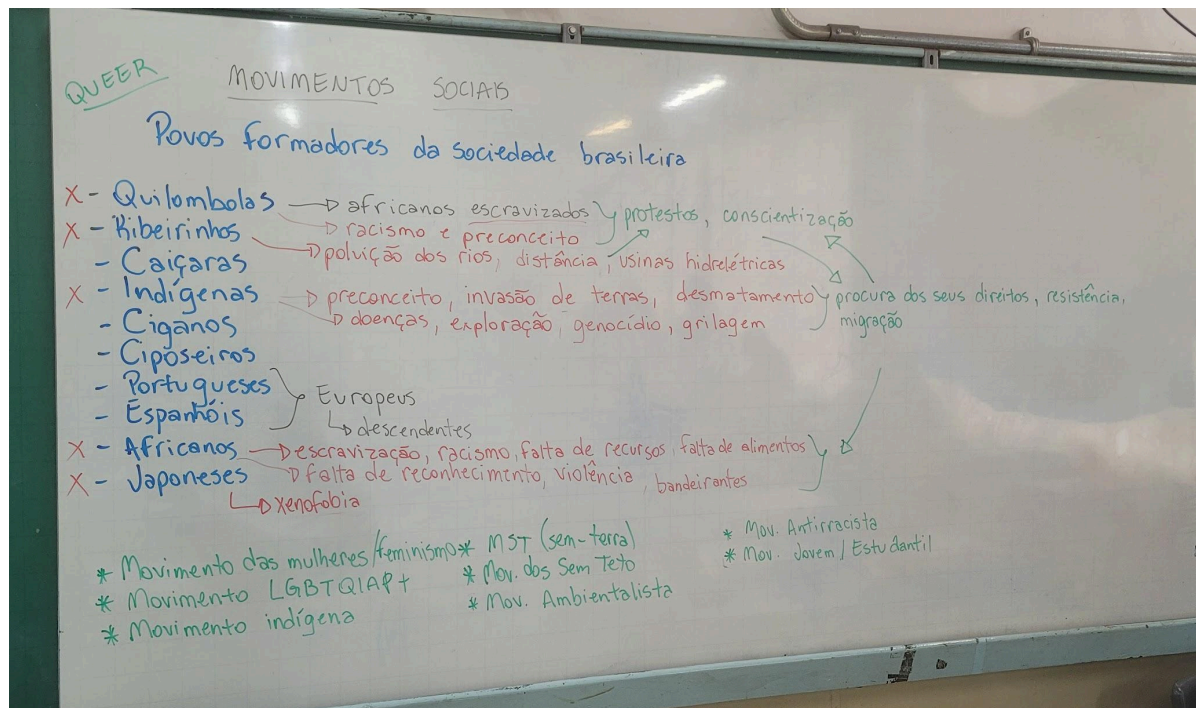 QUEER
MOVIMENTOS SOCIAIS
Povos formadores da sociedade brasileira
X - Quilombolas → africanos escravizados } protestos, conscientização
→ racismo e preconceito
X - Ribeirinhos → poluição dos rios, distância, usinas hidrelétricas
- Caiçaras
X - Indígenas → preconceito, invasão de terras, desmatamento } procura dos seus direitos, resistência,
→ doenças, exploração, genocídio, grilagem
migração
- Ciganos
- Ciposeiros
- Portugueses
- Espanhóis
} Europeus
↳ descendentes
X - Africanos → escravização, racismo, falta de recursos, falta de alimentos }
→ falta de reconhecimento, violência, bandeirantes
X - Japoneses
↳ xenofobia
* Movimento das mulheres/feminismo
* Movimento LGBTQIAP+
* Movimento indígena
* MST (sem-terra)
* Mov. dos Sem Teto
* Mov. Ambientalista
* Mov. Antirracista
* Mov. Jovem / Estudantil